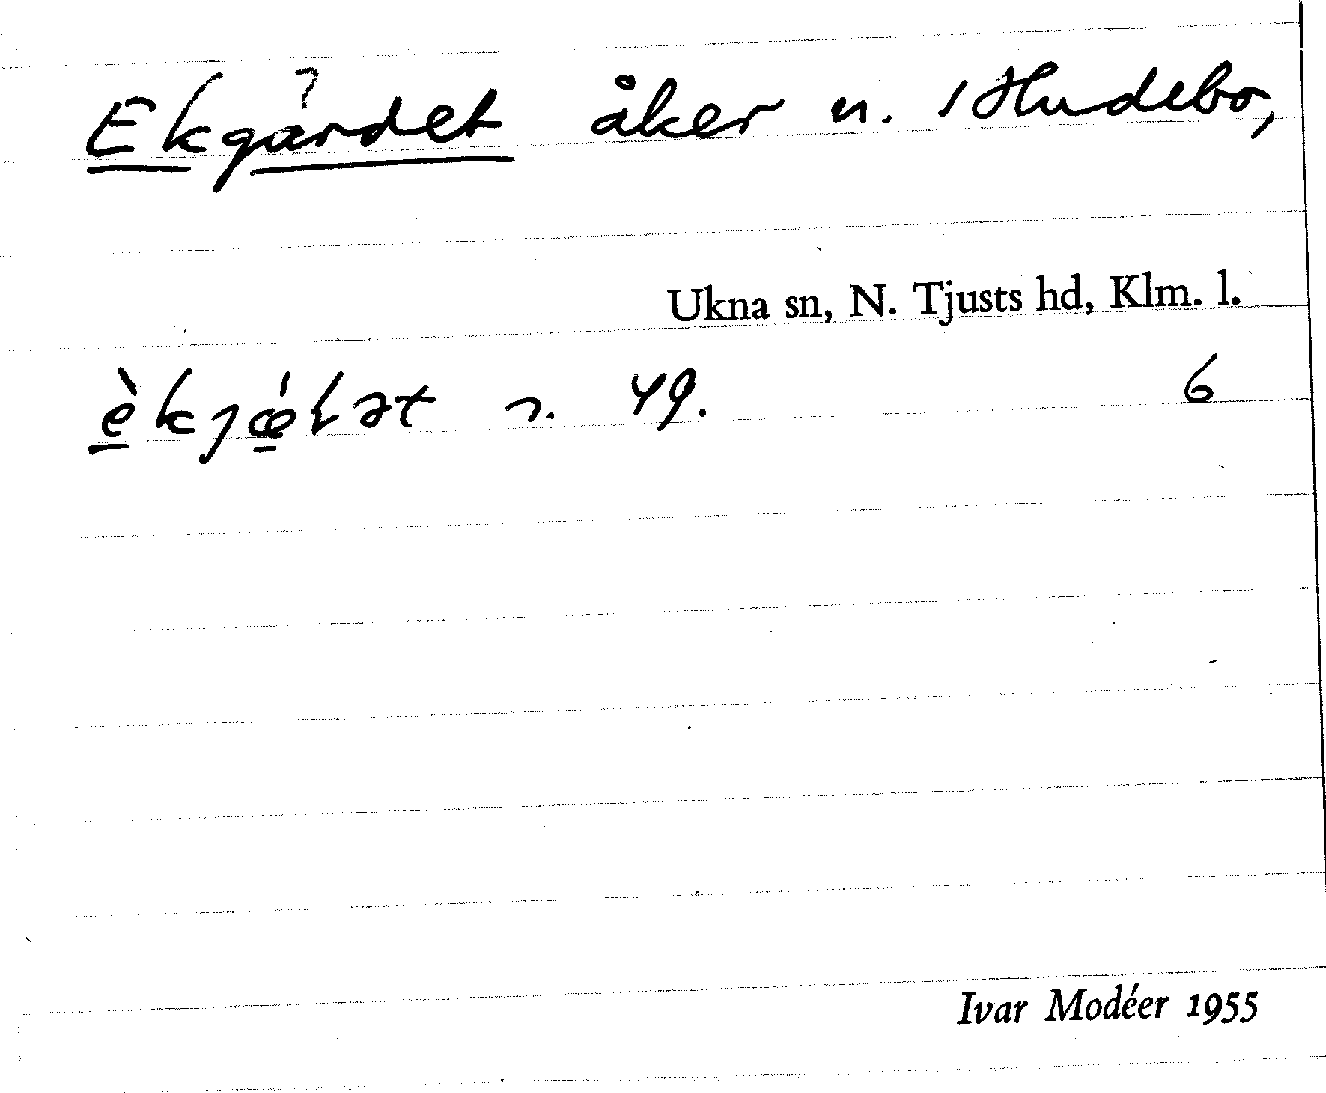 Ekgärdet åker n. 1 Hudebo,
Ukna sn, N. Tjusts hd, Klm. l.
49. 6
Ivar Modéer 1955